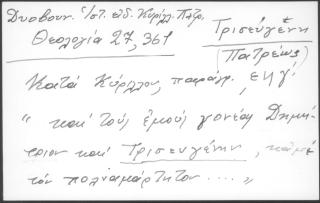 Δυοβουν. Ἱστ. εἰδ. Κύριλλ. Πατρ.
Θεολογία 27, 361
Τρισεύγενη
(Πατρέως)
Κατά Κύριλλον, παράγρ. ΕΗγ'
"καί τούς ἐμούς γονέας Δημή-
τριον καί Τρισευγένην, κἀμέ
τόν πολυαμάρτητον ...."